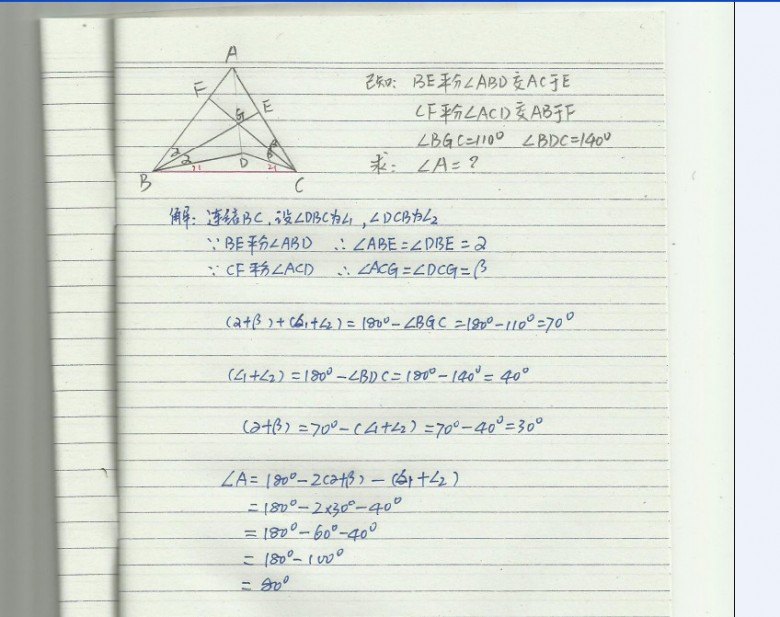 A
F
E
G
2
2
D
β
β
∠1
∠2
B
C
已知: BE平分∠ABD交AC于E
CF平分∠ACD交AB于F
∠BGC=110° ∠BDC=140°
求: ∠A=?
解: 连结BC, 设∠DBC为∠1, ∠DCB为∠2
∵ BE平分∠ABD ∴ ∠ABE=∠DBE=2
∵ CF平分∠ACD ∴ ∠ACG=∠DCG=β
(2+β)+(∠1+∠2)=180°-∠BGC=180°-110°=70°
(∠1+∠2)=180°-∠BDC=180°-140°=40°
(2+β)=70°-(∠1+∠2)=70°-40°=30°
∠A=180°-2(2+β)-(∠1+∠2)
=180°-2×30°-40°
=180°-60°-40°
=180°-100°
=80°